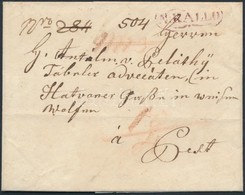 Nro 284 504 N. KALLO
Herrn
H. Anthalm v.
Tabular advocaten, in
Hatvaner Gasse in weisen
Wolfen
à
Pest